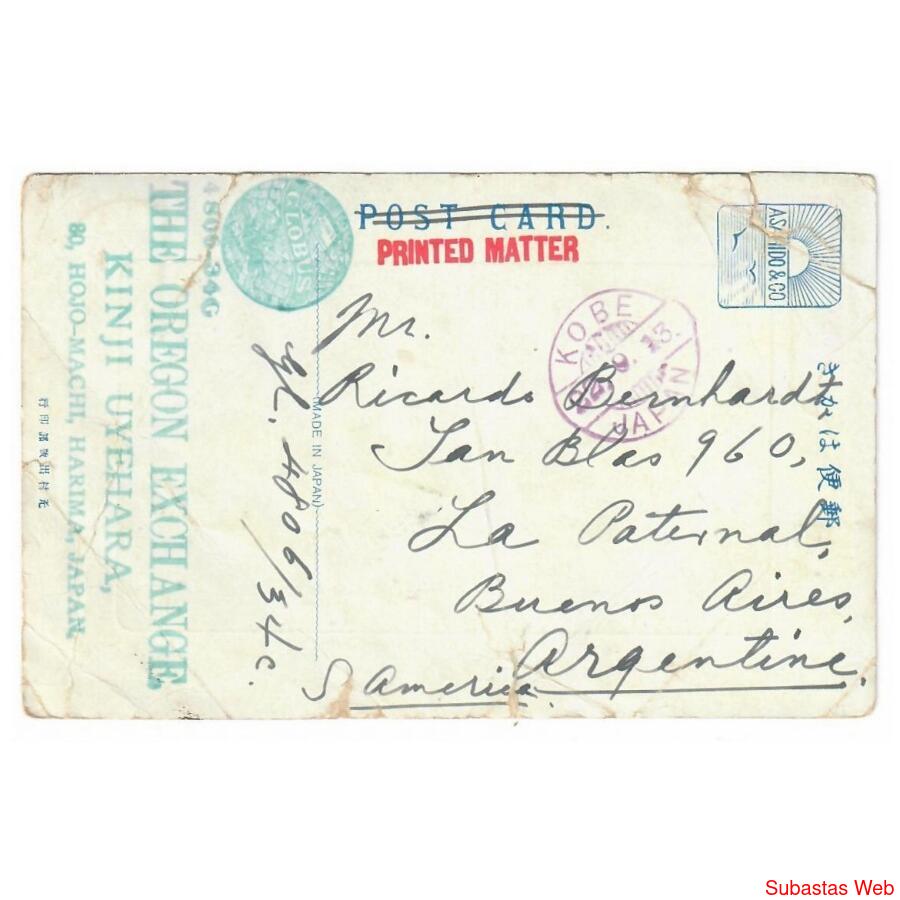 POST CARD.
PRINTED MATTER
ASAHIDO & CO
KOBE
JAPAN
きがは便郵
Mr.
Ricardo Bernhardt
San Blas 960,
La Paternal,
Buenos Aires,
Argentine.
S America.
(MADE IN JAPAN)
4806/34c.
GLOBUS
THE OREGON EXCHANGE,
KINJI UYEHARA,
80, HOJO-MACHI, HARIMA, JAPAN.
Subastas Web